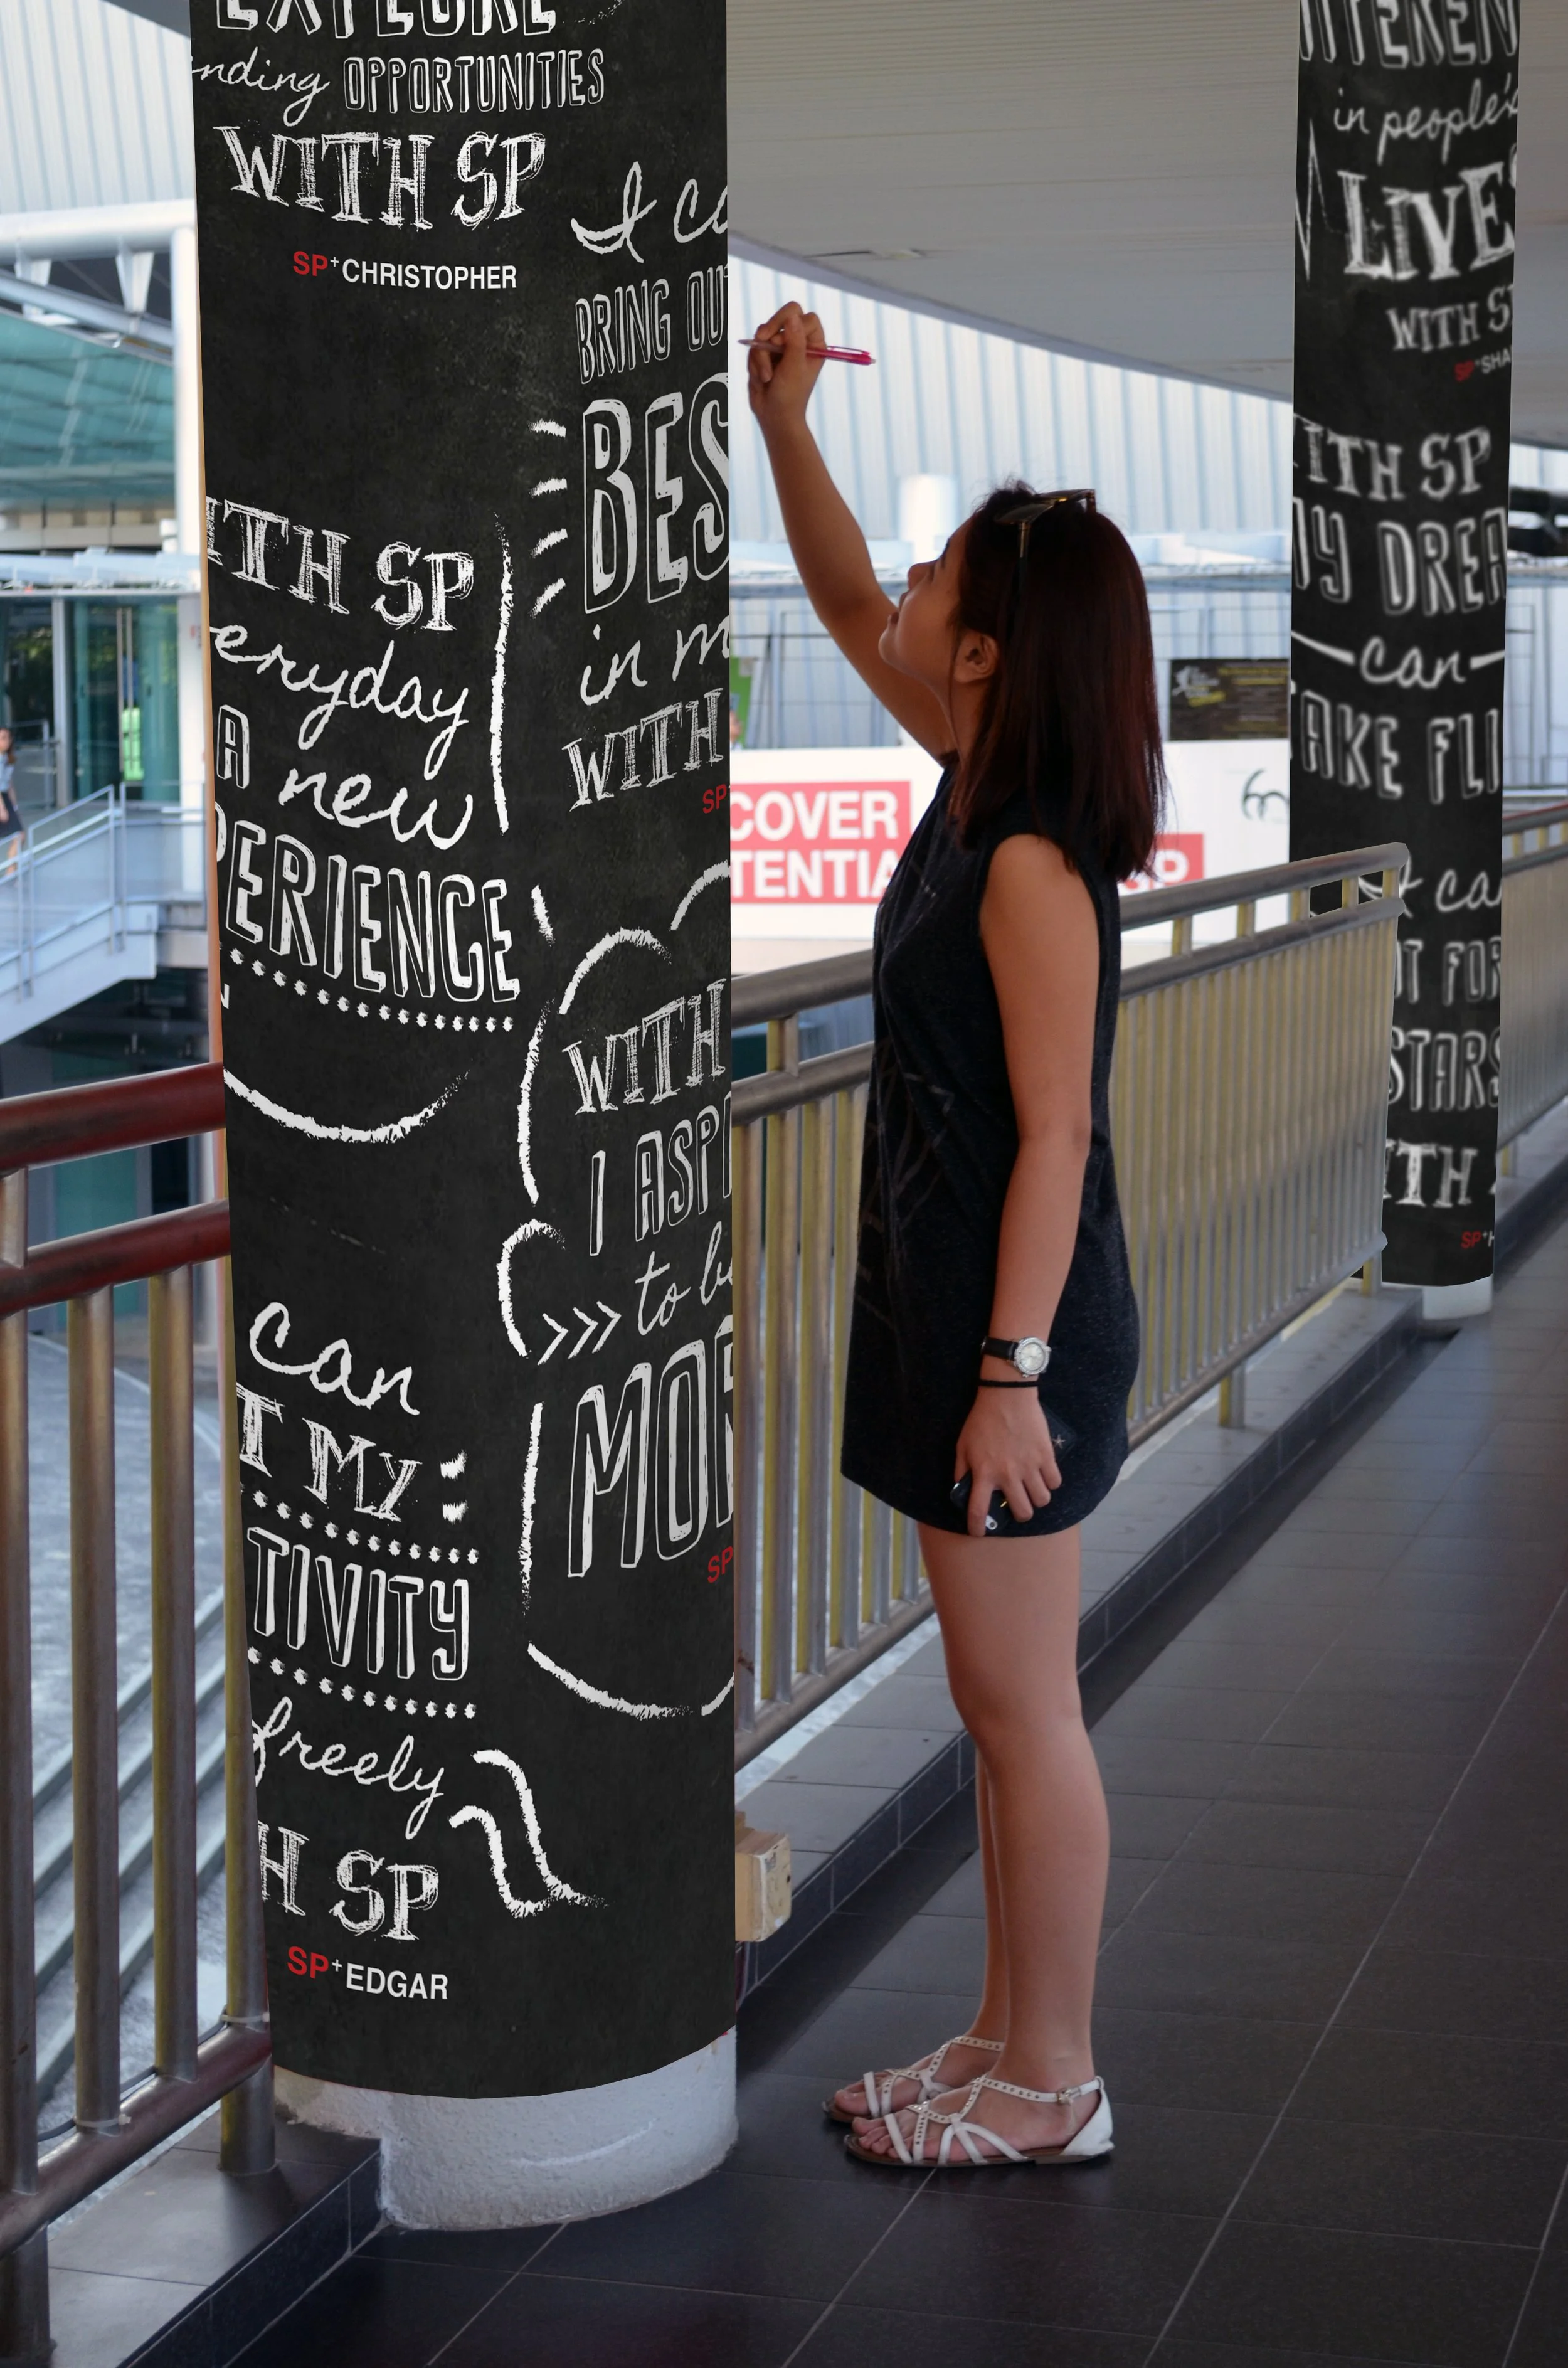 EXPLORE
nding OPPORTUNITIES
WITH SP
SP+CHRISTOPHER
ITH SP
eryday
A new
PERIENCE
can
T MY
TIVITY
freely
H SP
SP+EDGAR
I ca
BRING OUT
BES
in m
WITH
SP
WITH
I ASPI
to be
MOR
SP
COVER
TENTIA
SP
IFFEREN
in people's
LIVES
WITH S
SP+SHA
ITH SP
MY DREA
can
TAKE FLI
I ca
T FOR
STARS
ITH
SP+H